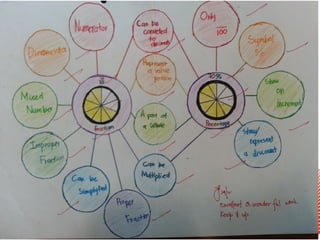 Numerator
Can be
converted to
decimals
Only
100
Symbol
%
Denominator
Represent
a whole
portion
Mixed
Number
Fraction
10%
Percentage
A part of
a whole
Show
an
Increment
Improper
Fraction
Can be
Simplified
Proper
Fraction
Can be
Multiplied
Show/
represent
a discount
Excellent & wonderful work
Keep it up